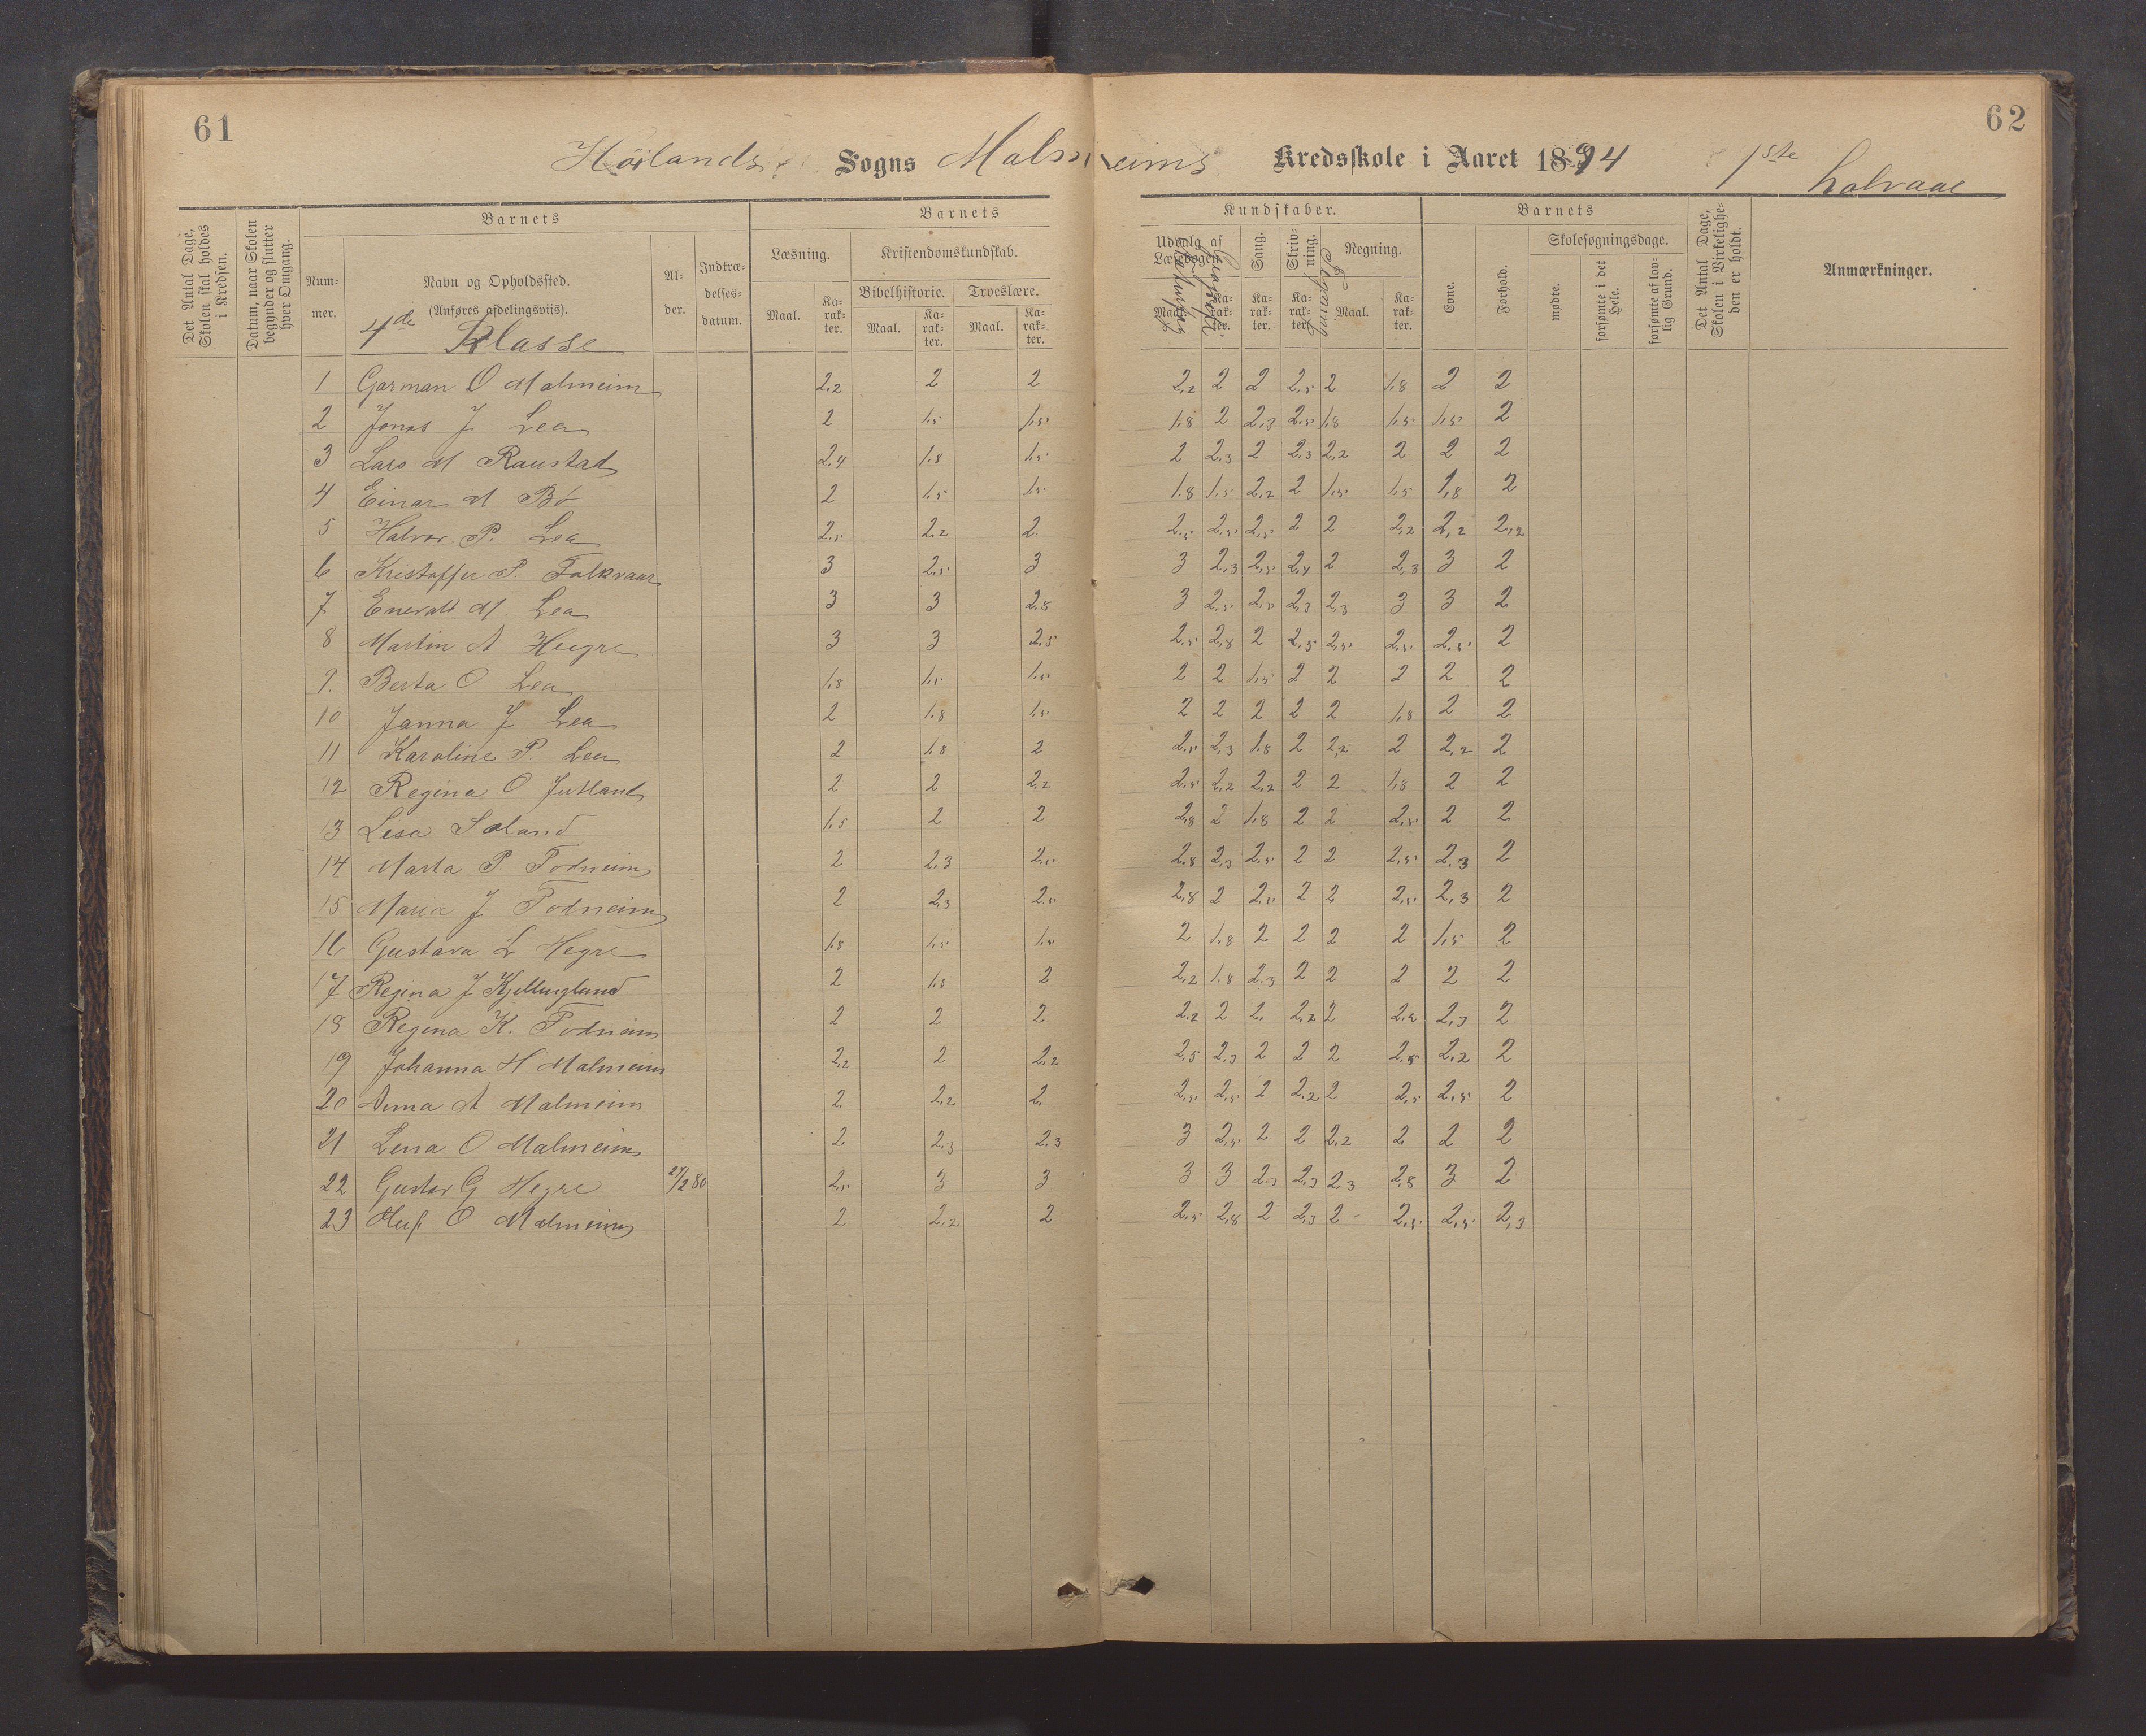 61
62
Höilands Sogns Malmeims Kredsskole i Aaret 1894 1ste halvaar
Det Antal Dage, Skolen skal holdes i Kredsen.
Datum, naar Skolen begynder og slutter hver Omgang.
Barnets
Nummer.
Navn og Opholdssted.
(Anføres afdelingsviis).
4de Klasse
Alder.
Indtrædelsesdatum.
Barnets
Læsning.
Kristendomskundskab.
Bibelhistorie.
Troeslære.
Maal. Karakter. Maal. Karakter. Maal. Karakter.
Kundskaber.
Udvalg af Læsebogen.
Maal. Karakter.
Sang.
Karakter.
Skrivning.
Karakter.
Regning.
Maal. Karakter.
Barnets
Evne.
Forhold.
Skolesøgningsdage.
mødte.
forsømte i det Hele.
forsømte af lovlig Grund.
Det Antal Dage, Skolen i Virkeligheden er holdt.
Anmærkninger.
1 Garman O Malmeim 2,2 2 2 2,2 2 2 2,5 2 1,8 2 2
2 Jonas J Lea 2 1,5 1,5 1,8 2 2,3 2,5 1,8 1,5 1,5 2
3 Lars M Raustad 2,4 1,8 1,5 2 2,3 2 2,3 2,2 2 2 2
4 Einar M Bö 2 1,5 1,5 1,8 1,5 2,2 2 1,5 1,5 1,8 2
5 Halvor P. Lea 2,5 2,2 2. 2,5 2,5 2,5 2 2 2,2 2,2 2,2
6 Kristoffer P. Folkvaar 3 2,5 3 3 2,3 2,5 2,4 2 2,3 3 2
7 Enevald M. Lea 3 3 2,8 3 2,5 2,5 2,3 2,3 3 3 2
8 Martin A Hegre 3 3 2,5 2,5 2,8 2 2,5 2,5 2,5 2,5 2
9. Berta O Lea 1,8 1,5 1,5 2 2 1,5 2 2 2 2 2
10 Janna J Lea 2 1,8 1,5 2 2 2 2 2 1,8 2 2
11 Karoline P. Lea 2 1,8 2 2,5 2,3 1,8 2 2,2 2 2,2 2
12 Regina O Jutland 2 2 2,2 2,5 2,2 2,2 2 2 1,8 2 2
13 Lisa Soland 1,5 2 2 2,8 2 1,8 2 2 2,5 2 2
14 Marta P. Todneim 2 2,3 2,5 2,8 2,3 2,5 2 2 2,5 2,3 2
15 Maria J Todneim 2 2,3 2,5 2,8 2 2,5 2 2 2,5 2,3 2
16 Gustava L Hegre 1,8 1,5 1,5 2 1,8 2 2 2 2 1,5 2
17 Regina J Kjellingland 2 1,8 2 2,2 1,8 2,3 2 2 2 2 2
18 Regina K. Todneim 2 2 2 2,2 2 2. 2,2 2 2,2 2,3 2
19 Johanna H Malmeim 2,2 2 2,2 2,5 2,3 2 2 2 2,5 2,2 2
20 Anna A Malmeim 2. 2,2 2. 2,5 2,5 2 2,2 2 2,5 2,5 2
21 Lena O Malmeim 2 2,3 2,3 3 2,5 2 2 2,2 2 2 2
22 Gustav G Hegre 27/2 80 2,5 3 3 3 3 2,3 2,3 2,3 2,8 3 2
23 O Malmeim 2 2,2 2 2,5 2,8 2 2,3 2 - 2,5 2,5 2,3